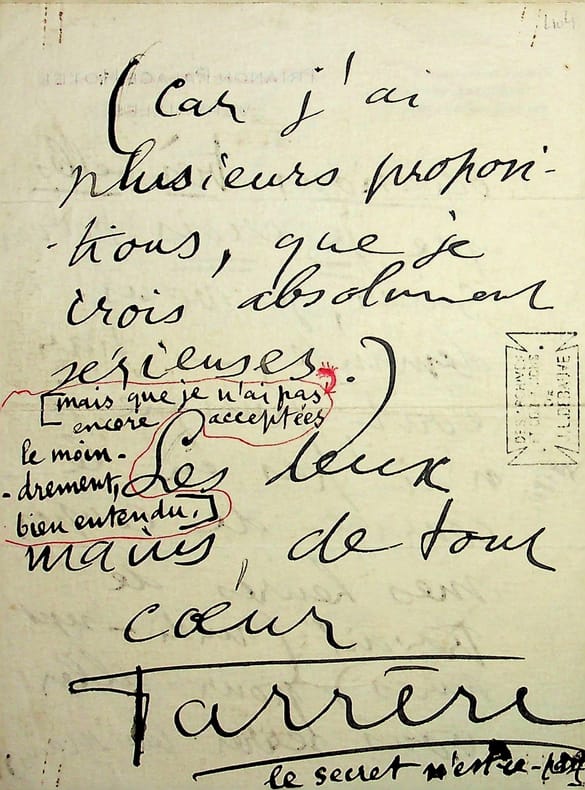 (Car j'ai
plusieurs proposi-
-tions, que je
crois absolument
sérieuses.)
[mais que je n'ai pas
encore acceptées
le moin-
-drement,
bien entendu.]
Les deux
mains, de tout
cœur
Farrère
le secret n'est-ce-pas